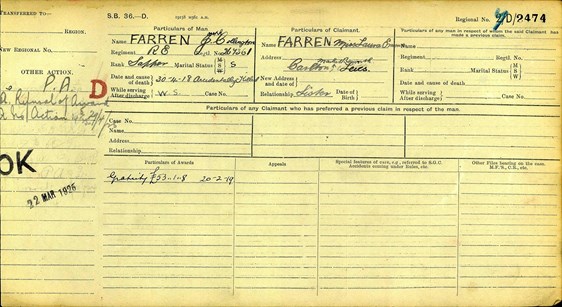 TRANSFERRED TO:—
REGION.
NEW REGIONAL NO.
OTHER ACTION.
P.A. D
Refusal of Award
No Action
OK
22 MAR 1926
S.B. 36.—D.
Regional No. D/2474
Particulars of Man.
Name FARREN J. C.
Regiment R E No.
Rank Sapper Marital Status M W S S
Date and cause of death 30-4-18 Accidentally Killed
While serving
After discharge W.S. Case No.
Particulars of Claimant.
Name FARREN Miss Laura
Rank Marital Status
New Address and date
Leics.
Relationship Sister Date of Birth
While serving
After discharge Case No.
Particulars of any man in respect of whom the said Claimant has made a previous claim.
Name
Regiment No.
Rank Marital Status M W S
Date and cause of death
While serving
After discharge Case No.
Particulars of any Claimant who has preferred a previous claim in respect of the man.
Name
Address
Relationship
Particulars of Awards
Appeals
Special features of case, e.g., referred to S.G.C. Accidents coming under Rules, etc.
Other Files bearing on the case. M.F.S., C.R., etc.
Gratuity £53-1-8 20-2-19